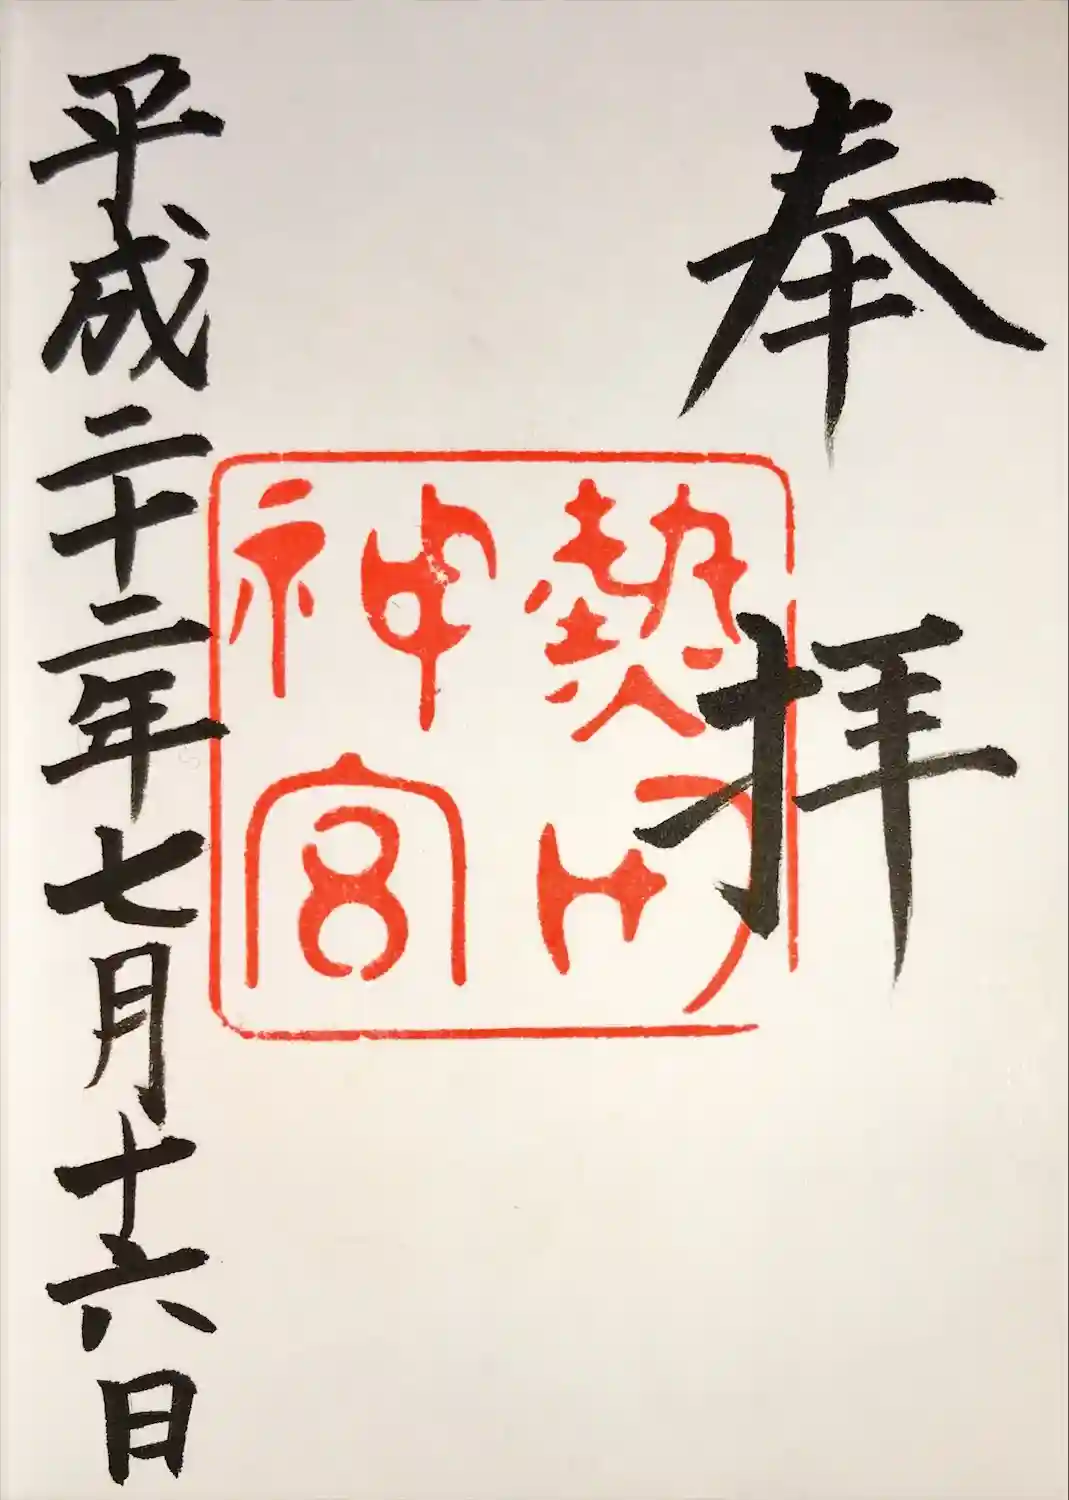 奉拝
熱田
神宮
平成二十二年七月十六日